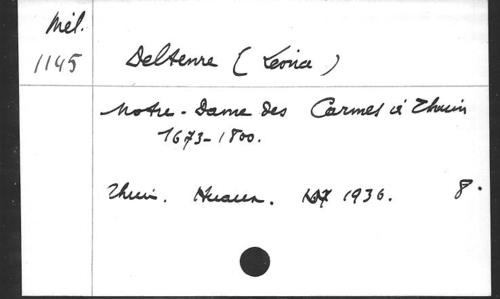 Mél.
1145
Deltenre (Leona)
Notre-Dame des Carmes à Thuin
1673-1800.
Thuin. 1936. 8.